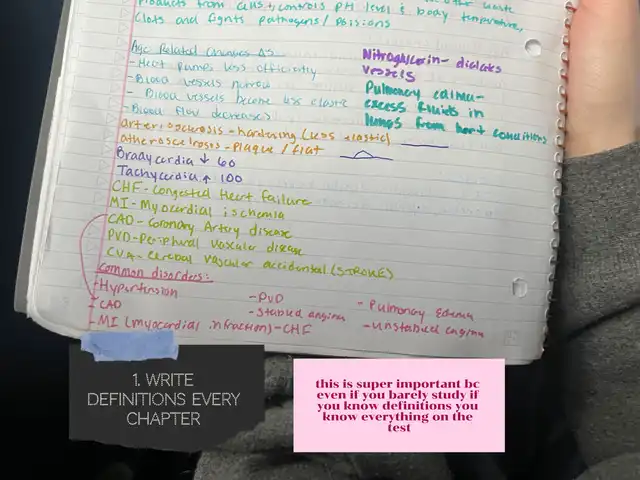 Products from cells, controls pH level & body temperature,
Clots and fights pathogens / poisions
Age Related Changes Δs
- Heart pumps less efficiently
- Blood vessels narrow
- Blood vessels become less elastic
- Blood flow decreases
Nitroglycerin- dialates
vessels
Pulmonary edima-
excess fluids in
lungs from heart conditions
arteriosclerosis - hardening (less elastic)
atherosclrosis - Plaque / flat
Bradycardia ↓ 60
Tachycardia ↑ 100
CHF - Congested Heart failure
MI - Myocardial ischemia
CAD - Coronary Artery disease
PVD - Peripheral vascular disease
CVA - Cerebal vascular accidental (STROKE)
Common disorders:
- Hypertension
- PVD
- Pulmonary Edema
- CAD
- Stabled angina
- unstabled angina
- MI (myocardial infraction) - CHF
1. WRITE
DEFINITIONS EVERY
CHAPTER
this is super important bc
even if you barely study if
you know definitions you
know everything on the
test